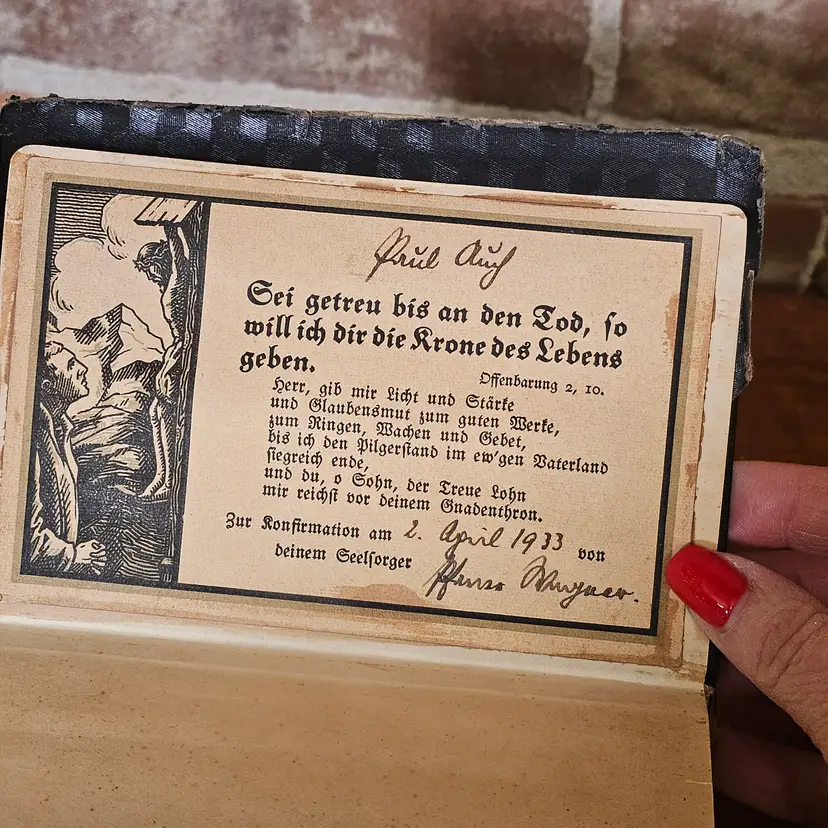 Paul Auch
Sei getreu bis an den Tod, so
will ich dir die Krone des Lebens
geben.
Offenbarung 2, 10.
Herr, gib mir Licht und Stärke
und Glaubensmut zum guten Werke,
zum Ringen, Wachen und Gebet,
bis ich den Pilgerstand im ew'gen Vaterland
siegreich ende,
und du, o Sohn, der Treue Lohn
mir reichst vor deinem Gnadenthron.
Zur Konfirmation am 2. April 1933 von
deinem Seelsorger